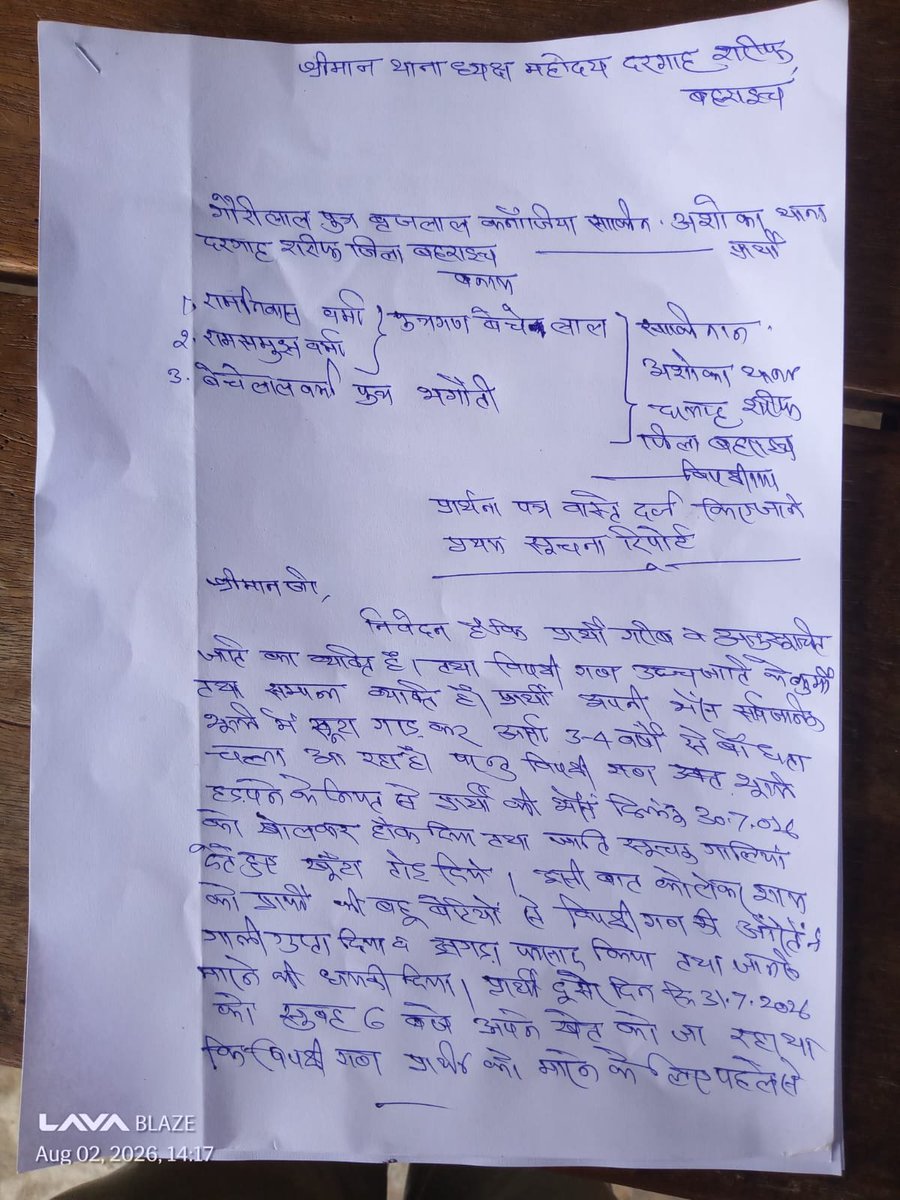 श्रीमान थाना ध्यक्ष महोदय दरगाह शरीफ,
बहराइच
गौरीलाल पुत्र बृजलाल कनौजिया साकिन. अशोका थाना
दरगाह शरीफ जिला बहराइच प्रार्थी
बनाम
1, रामनिवास वर्मा } पुत्रगण बेचे लाल साकिनान.
2. रामसमुझ वर्मा अशोका थाना
3. बेचेलाल वर्मा पुत्र भगौती शरीफ
जिला बहराइच
विपक्षीगण
प्रार्थना पत्र वास्ते दर्ज किए जाने
प्रथम सूचना रिपोर्ट
श्रीमान जी,
निवेदन है कि प्रार्थी गरीब व अनुसूचित
जाति का व्यक्ति है। तथा विपक्षी गण उच्च जाति के कुर्मी
तथा सम्पन्न व्यक्ति हैं। प्रार्थी अपनी भैंस सार्वजनिक
भूमि में खूटा गाड़ कर अर्सा 3-4 वर्षो से बाँधता
चला आ रहा है। परन्तु विपक्षी गण उक्त भूमि
हड़पने के नियत से प्रार्थी की भैंस दिनांक 30.7.026
को खोलकर हाँक दिया तथा जाति सूचक गालियां
देते हुए खूँटा तोड़ दिये। इसी बात को लेकर शाम
को प्रार्थी की बहू बेटियों से विपक्षी गण की औरतों ने
गाली गुप्ता दिया व झगड़ा फसाद किया तथा जान से
मारने की धमकी दिया। प्रार्थी दूसरे दिन दि 31.7.2026
को सुबह 6 बजे अपने खेत को जा रहा था
कि विपक्षी गण प्रार्थी को मारने के लिए पहले से
LAVA BLAZE
Aug 02, 2026, 14:17